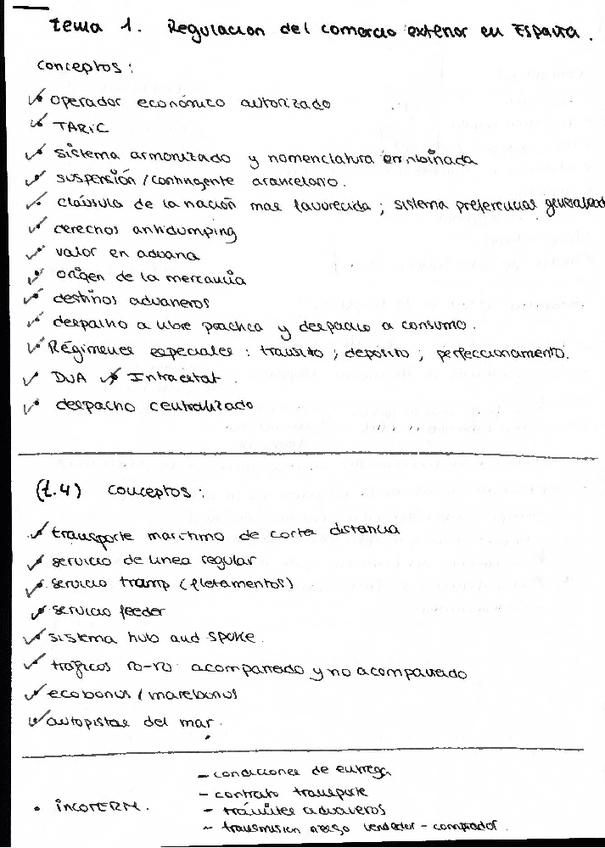 tema 1. Regulacion del comercio exterior en España.
conceptos:
✓ operador económico autorizado
✓ TARIC
✓ sistema armonizado y nomenclatura combinada
✓ suspensión/contingente arancelario.
✓ claúsula de la nación mas favorecida; sistema preferencias generalizado
✓ derechos antidumping
✓ valor en aduana
✓ origen de la mercancia
✓ destinos aduaneros
✓ despacho a libre practica y despacho a consumo.
✓ Régimenes especiales: transito; depósito; perfeccionamiento.
✓ DUA ✓ Intrastat.
✓ despacho centralizado
(t.4) conceptos:
✓ transporte maritimo de corta distancia
✓ servicio de linea regular
✓ servicio tramp (fletamentos)
✓ servicio feeder
✓ sistema hub and spoke.
✓ tráficos ro-ro: acompañado y no acompañado
✓ ecobonus / marebonus
✓ autopistas del mar.
- condiciones de entrega
- contrato transporte
• INCOTERM. - trámites aduaneros
- transmision riesgo vendedor - comprador.